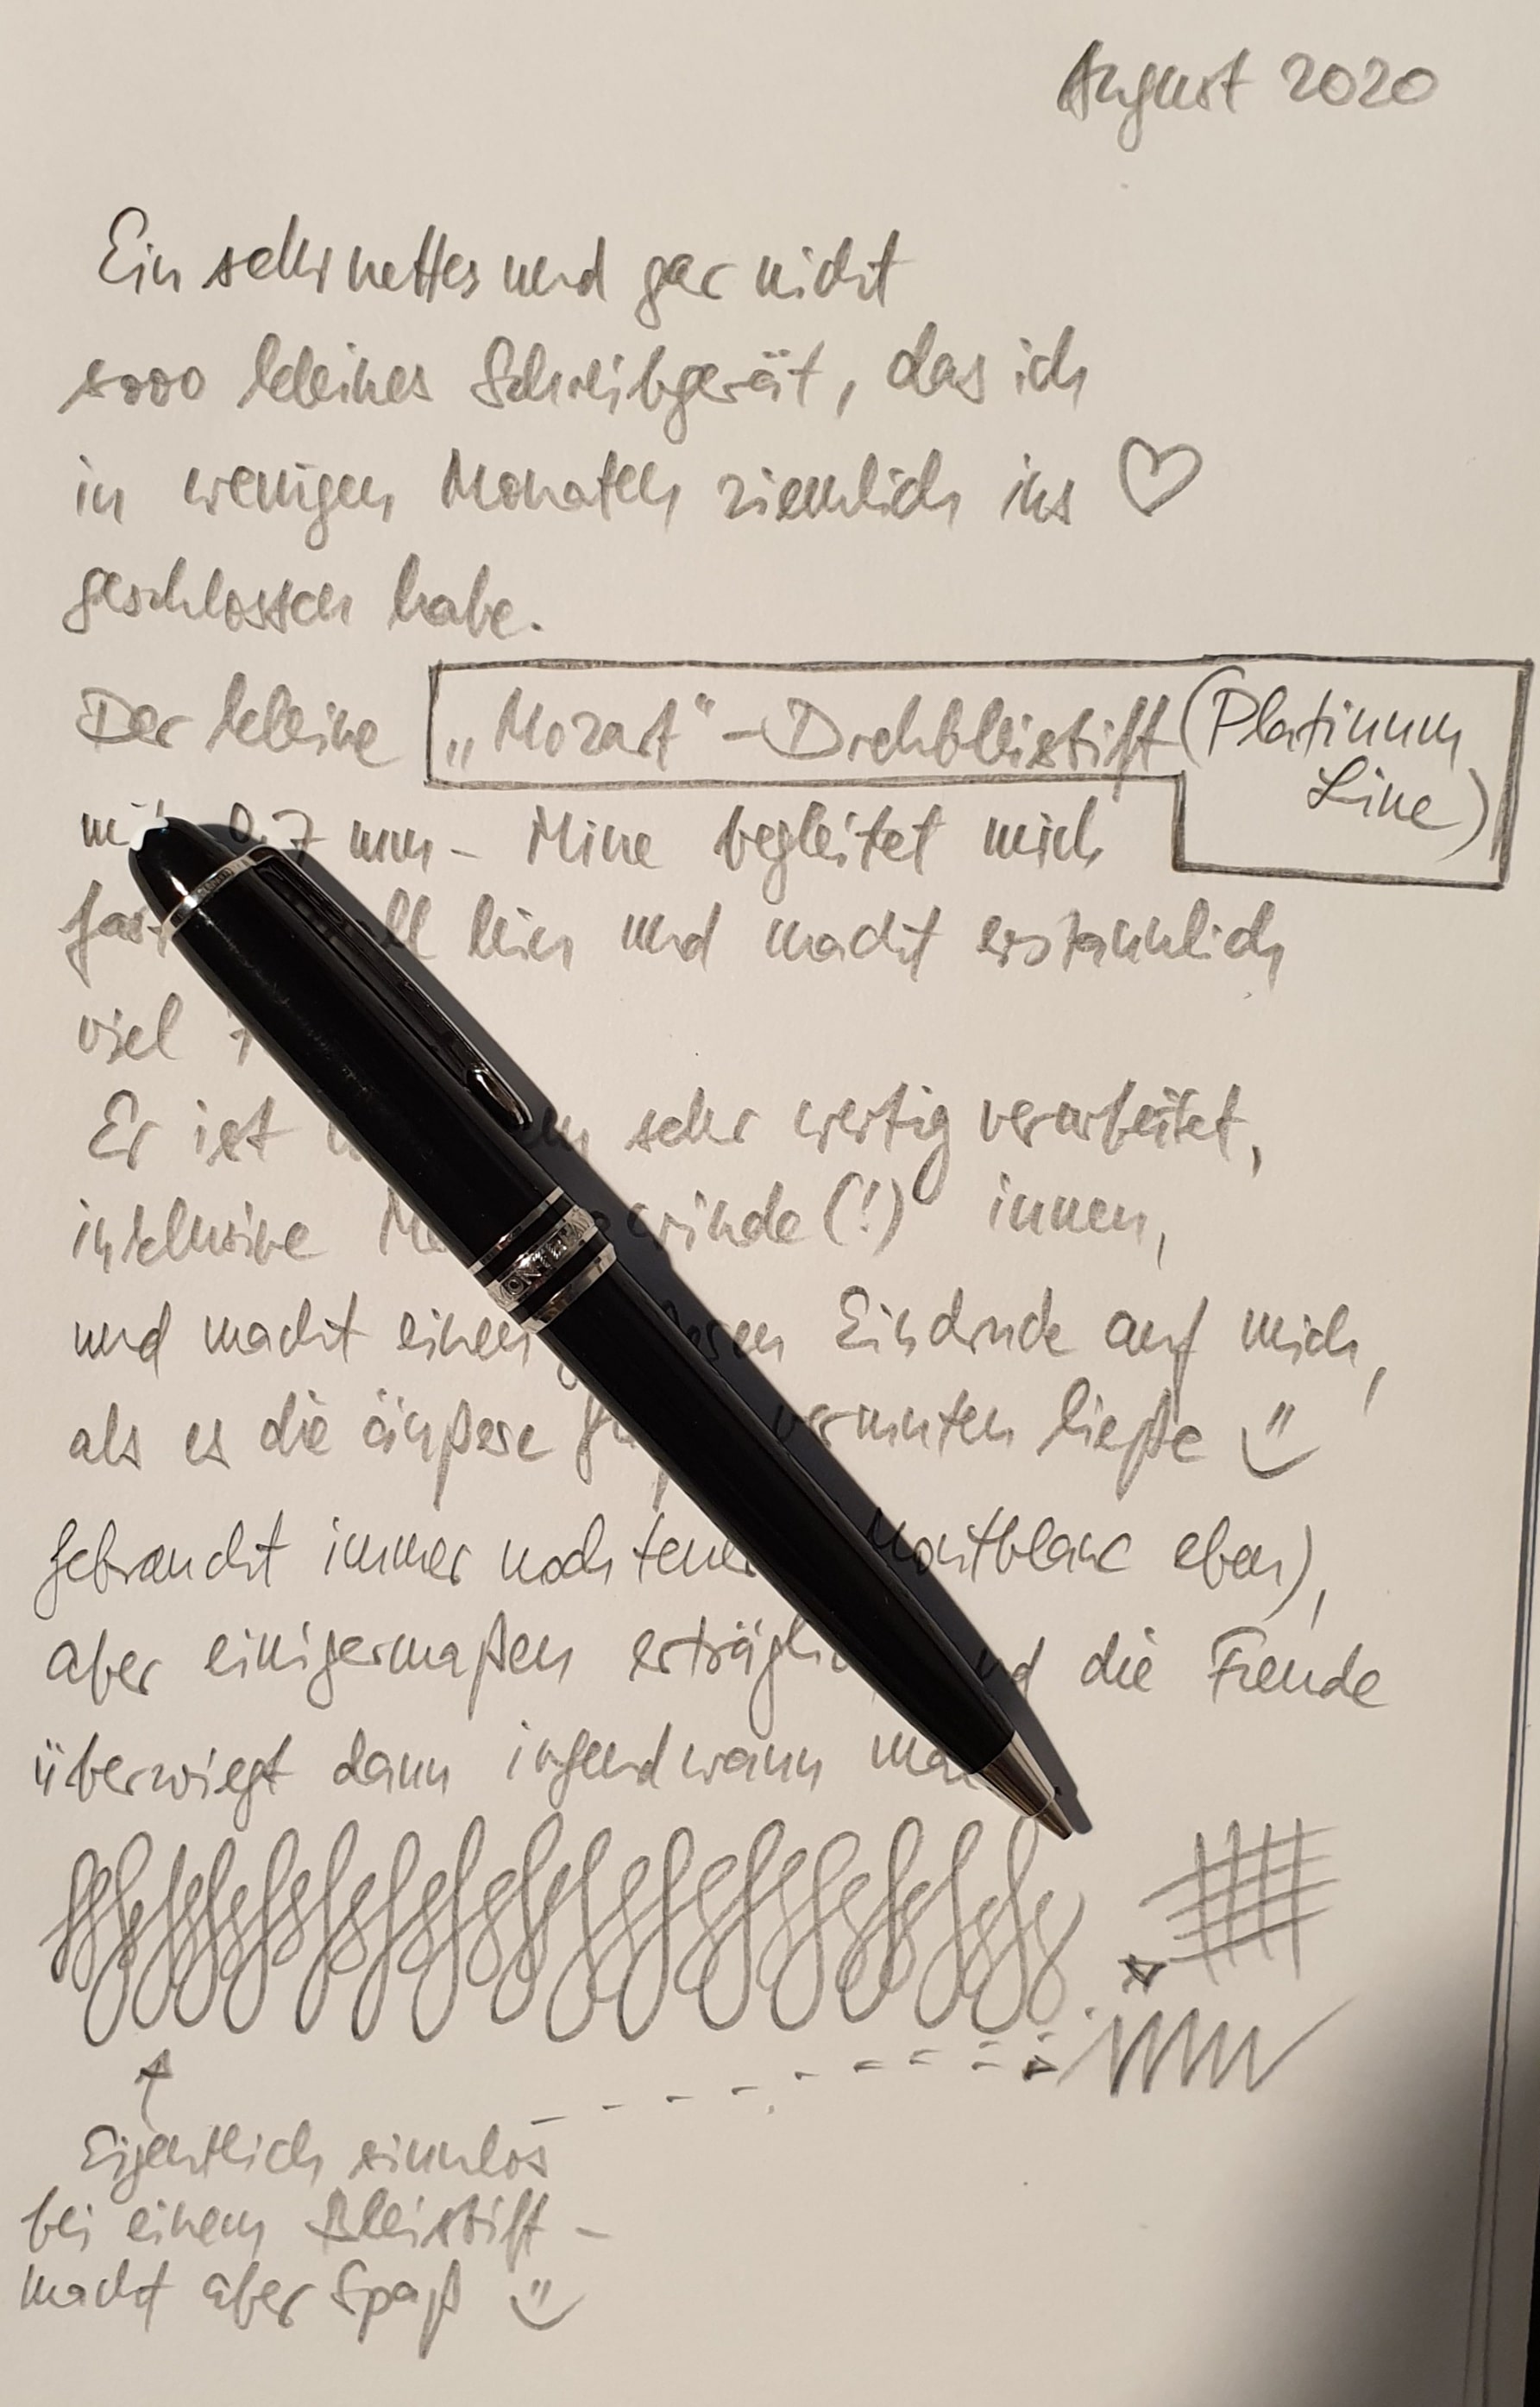 August 2020
Ein sehr nettes und gar nicht
sooo kleines Schreibgerät, das ich
in wenigen Monaten ziemlich ins ♡
geschlossen habe.
Der kleine „Mozart"-Drehbleistift (Platinum
Line)
0,7 mm - Mine begleitet mich
fast hin und macht erstaunlich
viel
Er ist sehr wertig verarbeitet,
inklusive (!) innen,
und macht einen Eindruck auf mich,
als es die äußere vermuten ließe
MONTBLANC
Gebraucht immer noch teuer Montblanc eben),
aber einigermaßen erträglich und die Freude
überwiegt dann irgendwann mal
Eigentlich sinnlos
bei einem Bleistift -
macht aber Spaß